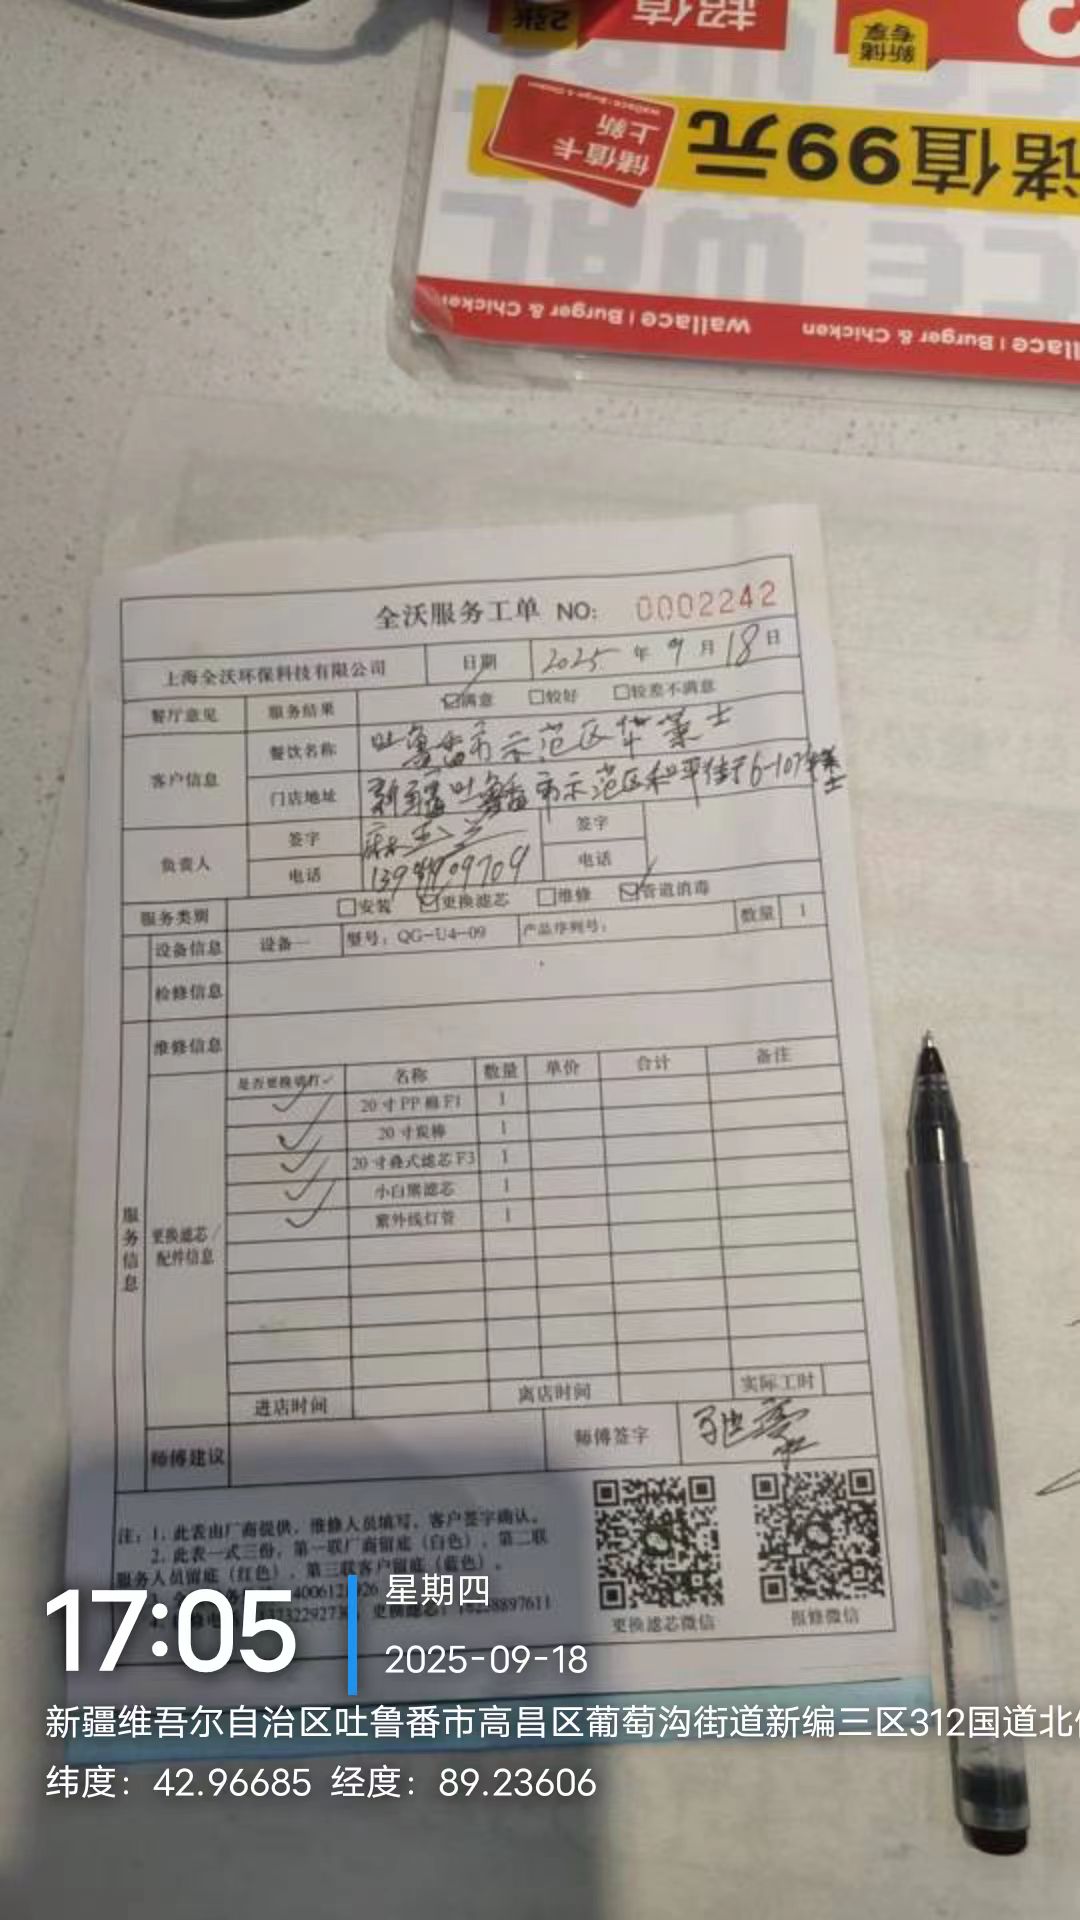 2张
超值
新储
专享
储值卡
上新
Wallace | Burger & Chicken
储值99元
CE WAL
Wallace | Burger & Chicken
Wallace | Burger & Chicken
全沃服务工单 NO: 0002242
上海全沃环保科技有限公司 日期 2025 年 9 月 18 日
餐厅意见 服务结果 ☑满意 □较好 □较差不满意
客户信息 餐饮名称 吐鲁番市示范区华莱士
门店地址 新疆吐鲁番市示范区和平佳于6-107华莱士
负责人 签字 签字
电话 电话
服务类别 □安装 ☑更换滤芯 □维修 ☑管道消毒
设备信息 设备一 型号：QG-U4-09 产品序列号： 数量 1
检修信息
维修信息
是否更换请打✓ 名称 数量 单价 合计 备注
✓ 20寸PP棉F1 1
✓ 20寸炭棒 1
✓ 20寸叠式滤芯F3 1
✓ 小白熊滤芯 1
✓ 紫外线灯管 1
服务信息
更换滤芯/
配件信息
进店时间 离店时间 实际工时
师傅建议 师傅签字
注：1. 此表由厂商提供，维修人员填写，客户签字确认。
2. 此表一式三份，第一联厂商留底（白色），第二联
服务人员留底（红色），第三联客户留底（蓝色）。
更换滤芯微信 报修微信
17:05
星期四
2025-09-18
新疆维吾尔自治区吐鲁番市高昌区葡萄沟街道新编三区312国道北
纬度：42.96685 经度：89.23606